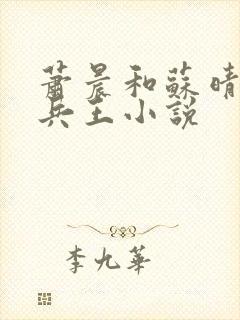 蕭晨和蘇晴
兵王小說
李九華